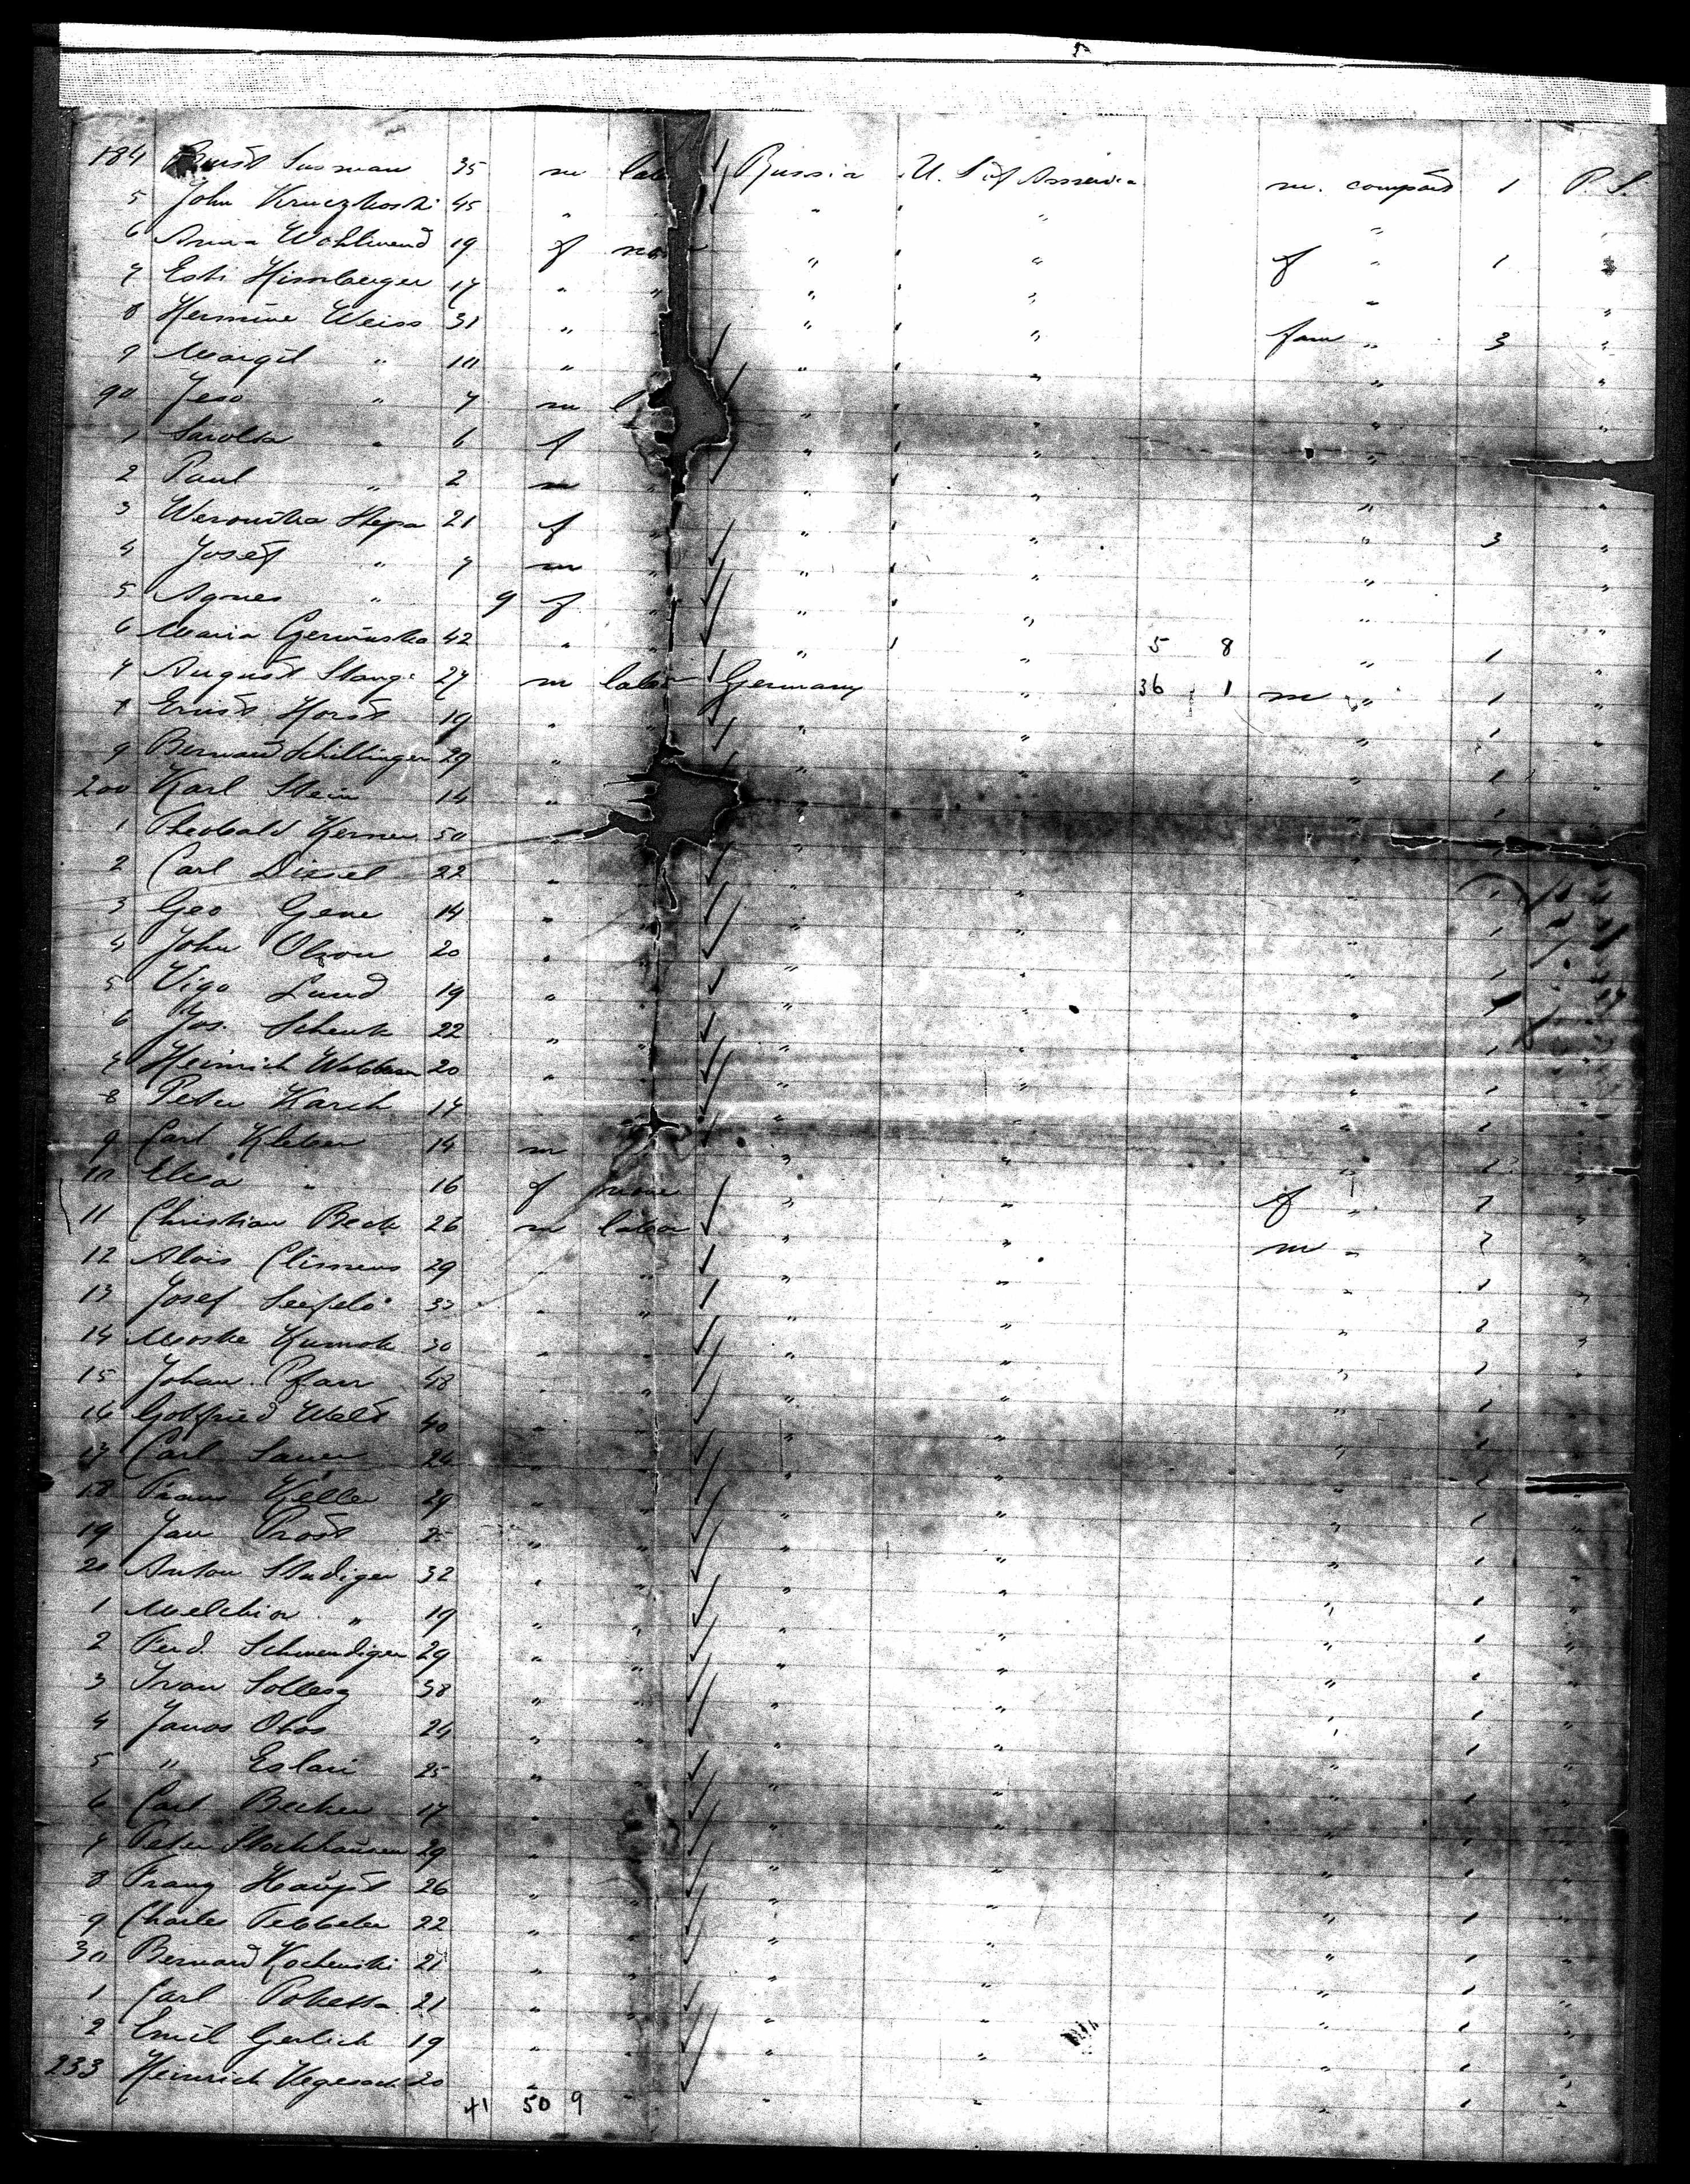 184 Susman 35 m lab Russia U. S. of America m. compart 1 P. S.
5 John Kruczkoski 45 " " "
6 Anna Wohlwend 19 f " " f " 1
7 Esti Hirnberger 17 " " " " "
8 Hermine Weiss 31 " " " fam " 3 "
9 Margit " 10 " " " " "
90 Jeso " 7 m " " " "
1 Sarolta " 6 f " " "
2 Paul " 2 m " " " " "
3 Weronika Stepa 21 f " " " " 3 "
4 Josef " 7 m " " " " "
5 Agnes " 9 f " " " " "
6 Maria 42 " " " 5 8 " 1 "
7 August Stange 27 m labor Germany " 36 1 m " 1 "
8 Ernst Horst 19 " " " " " 1 "
9 Bernard Schillinger 29 " " " " 1 "
200 Karl Stein 14 " " " 1
1 Theobald Kerner 50 " " " "
2 Carl Diesel 22 " " " 1
3 Geo Gene 14 " " " " " 1
4 John Olson 20 " " " " " 1
5 Vigo Lund 19 " " " " "
6 Jos. Schenk 22 " " " " " 1
7 Heinrich 20 " " " " 1
8 Peter Karch 17 " " " 1
9 Carl 14 m " " "
10 Elisa " 16 f none " " f " 1 "
11 Christian Beck 26 m labor " " m " "
12 Alois Climens 29 " " " " 1 "
13 Josef 33 " " " " "
14 30 " " " " 1
15 Johan Pfarr 48 " " " " " 1
16 Gottfried Wald 40 " " " " " 1
17 Carl Sauer 24 " " " " " 1
18 Franz Keller 29 " " " " " 1 "
19 Jan Prost " " " " " 1 "
20 Anton Studiger 32 " " " " " 1 "
1 Melchior " 19 " " " " " 1 "
2 Ferd. Schwendiger 29 " " " " " 1 "
3 Ivan Sollesz 38 " " " " " 1 "
4 Janos Olos 24 " " " " " 1 "
5 " Eslari 25 " " " " 1 "
6 Carl Becker 17 " " " " "
7 Peter Stockhausen 29 " " " " 1 "
8 Franz Haupt 26 " " " " " 1 "
9 Charles Tebbeler 22 " " " " " 1 "
30 Bernard Kochenski 21 " " " " " 1 "
1 Carl 21 " " " " " 1 "
2 Emil Gerlich 19 " " " " " 1 "
233 Heinrich Vegesack 20 " " " " " "
41 50 9